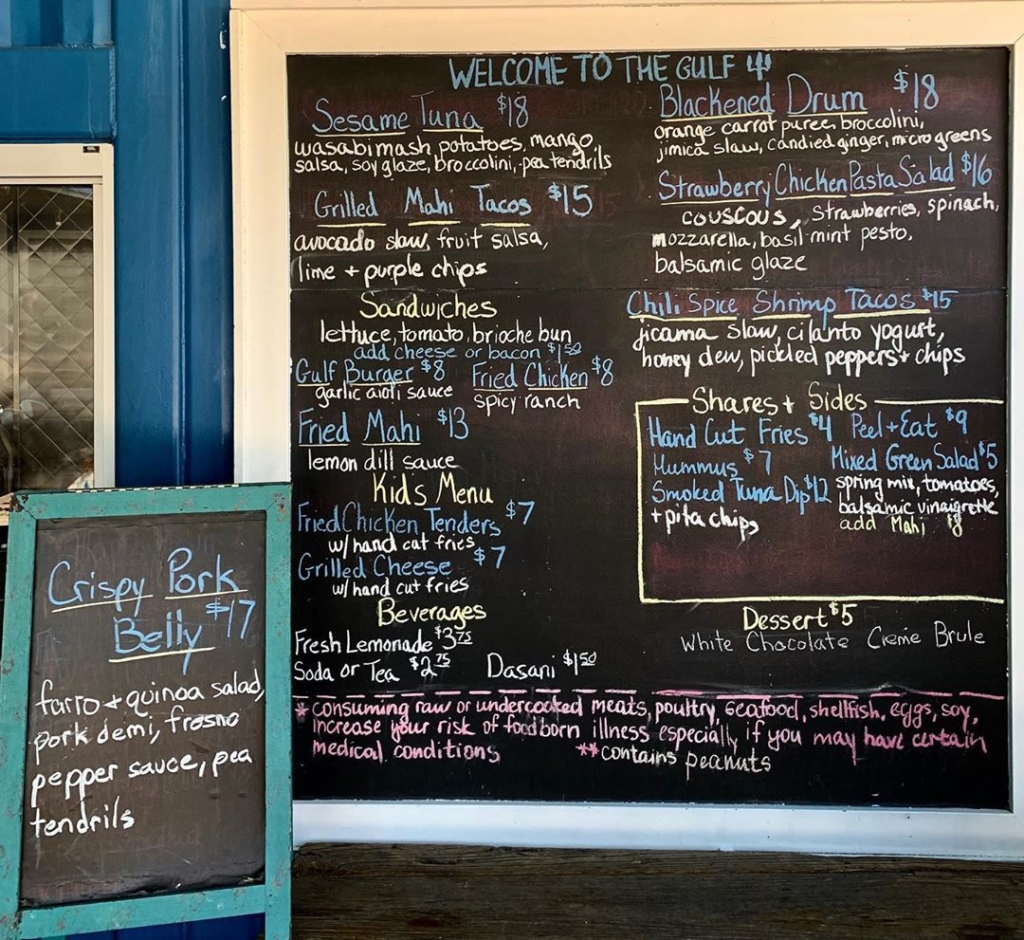 WELCOME TO THE GULF
Sesame Tuna $18
wasabi mash potatoes, mango
salsa, soy glaze, broccolini, pea tendrils
Grilled Mahi Tacos $15
avocado slaw, fruit salsa,
lime + purple chips
Sandwiches
lettuce, tomato, brioche bun
add cheese or bacon $1.50
Gulf Burger $8
garlic aioti sauce
Fried Chicken $8
spicy ranch
Fried Mahi $13
lemon dill sauce
Kid's Menu
Fried Chicken Tenders $7
w/ hand cut fries
Grilled Cheese $7
w/ hand cut fries
Beverages
Fresh Lemonade $3.75
Soda or Tea $2.75 Dasani $1.50
Blackened Drum $18
orange carrot puree, broccolini,
jimica slaw, candied ginger, micro greens
Strawberry Chicken Pasta Salad $16
couscous, strawberries, spinach,
mozzarella, basil-mint pesto,
balsamic glaze
Chili Spice Shrimp Tacos $15
jicama slaw, cilanto yogurt,
honey dew, pickled peppers + chips
Shares + Sides
Hand Cut Fries $4
Hummus $7
Smoked Tuna Dip $12
+ pita chips
Peel + Eat $9
Mixed Green Salad $5
spring mix, tomatoes,
balsamic vinaigrette
add Mahi $8
Dessert $5
White Chocolate Creme Brule
* consuming raw or undercooked meats, poultry, seafood, shellfish, eggs, soy,
increase your risk of foodborn illness especially if you may have certain
medical conditions ** contains peanuts
Crispy Pork
Belly $17
farro + quinoa salad,
pork demi, fresno
pepper sauce, pea
tendrils